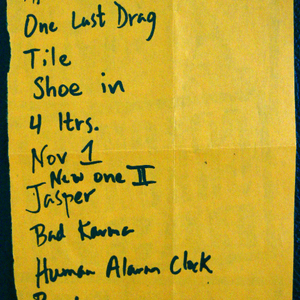 One Last Drag
Tile
Shoe in
4 ltrs.
Nov 1
New one II
Jasper
Bad Karma
Human Alarm Clock